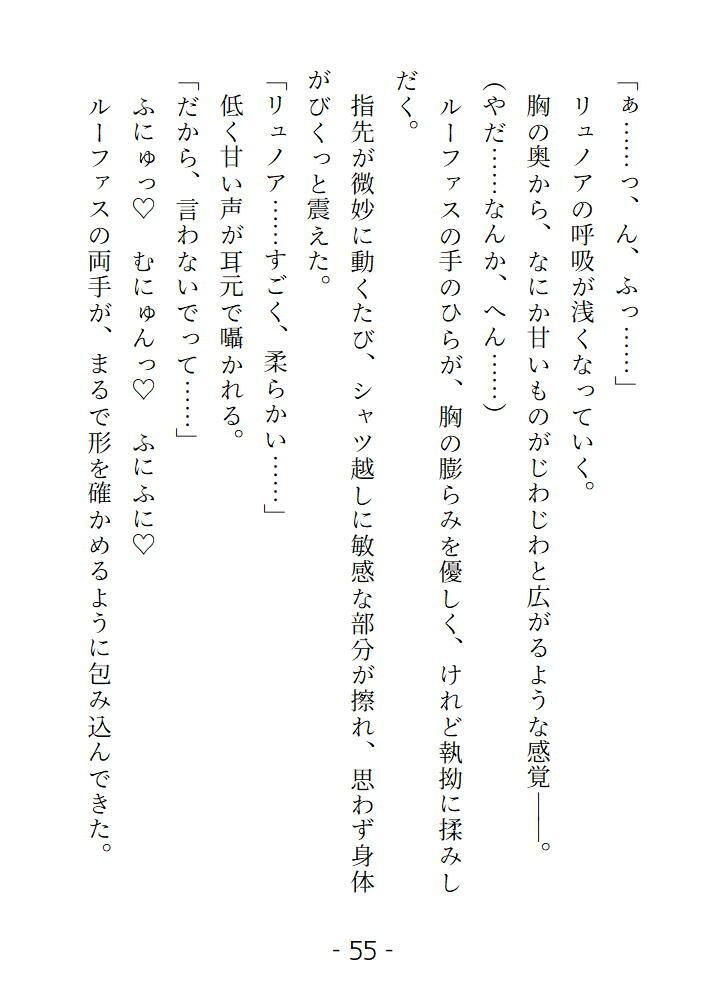 「ぁ……っ、ん、ふっ……」
リュノアの呼吸が浅くなっていく。
胸の奥から、なにか甘いものがじわじわと広がるような感覚――。
(やだ……なんか、へん……)
ルーファスの手のひらが、胸の膨らみを優しく、けれど執拗に揉みし
だく。
指先が微妙に動くたび、シャツ越しに敏感な部分が擦れ、思わず身体
がびくっと震えた。
「リュノア……すごく、柔らかい……」
低く甘い声が耳元で囁かれる。
「だから、言わないでって……」
ふにゅっ♡　むにゅんっ♡　ふにふに♡
ルーファスの両手が、まるで形を確かめるように包み込んできた。
- 55 -